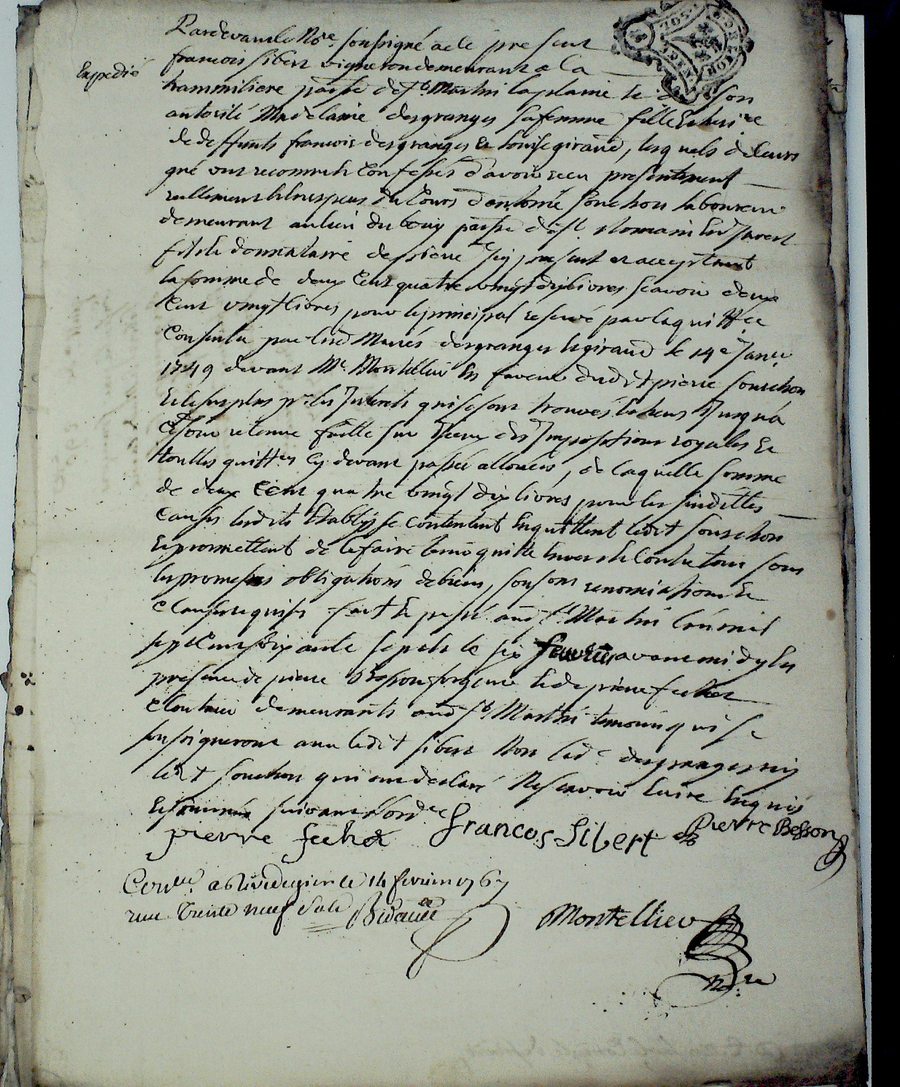 Pardevant le No.re soussigné a eté present
Expedié
francois sibert vigneron demeurant a la
hammiliere parr.sse de St. Martin laplaine le son
autorité Madelaine desgranges sa femme fille & heri.re
de deffunts francois desgranges & Louise giraud, lesquels de leurs
gré ont reconnu & confessés d'avoir recu presentement
reellement & des pieces du cours d'antoine souchon laboureur
demeurant au lieu du bouy parr.sse de st. Romain
fils & donnataire de pierre icy present et acceptant
la somme de deux cent quatre vingt dix livres scavoir deux
cent vingt livres pour le principal reservé par la quitt.ce
Consentie par lesd. Mariés desgranges & giraud le 14e Janv.
1749 devant Me. Montellier en faveur dudit pierre souchon
& le surplus pr. les Interets qui se sont trouvés & deus Jusqu'a
Ce Jour retenue faitte sur Iceux des Impositions royales &
touttes quitt.es cy devant passées allouées, de laquelle somme
de deux cent quatre vingt dix livres pour les susdittes
causes lesdits Etablis se contentent & quittent ledit souchon
& promettent de le faire tenir quitte envers & contre tous sous
les promesses obligations de biens, renonciations &
clauses requises fait & passé aud. St. Martin l'an mil
sept cent soixante sept & le six fevrier avant midy en
presence de pierre Besson forgeur & de pierre fechet
cloutier demeurants aud. St. Martin temoins qui
soussigneront avec ledit sibert Non lad.e desgranges ny
ledit souchon qui ont declaré Ne scavoir signer Enquis
& sommés suivant l'ord.ce
pierre fechet francos Sibert Pierre Besson
Con.lle a Rivedegier le 14 fevrier 1767
recu trente neuf sols
Montellier
No.re